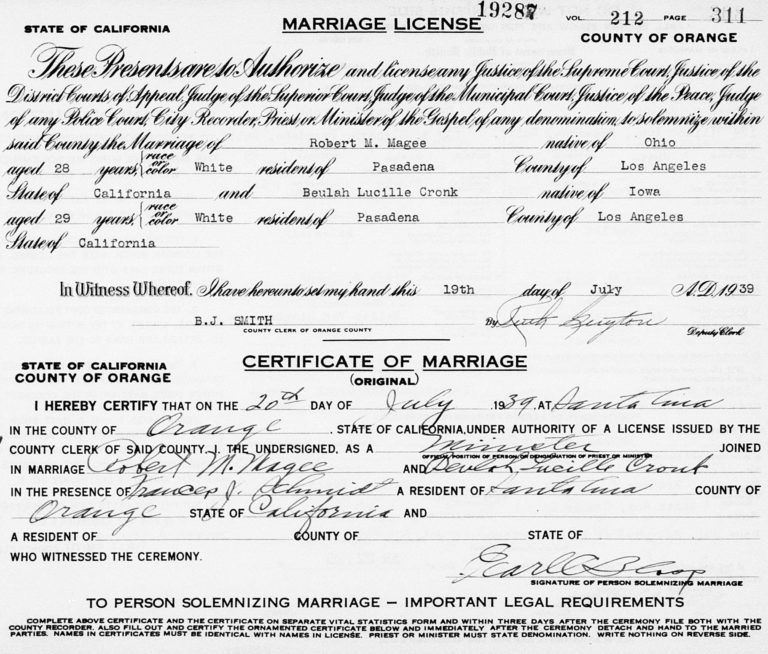 STATE OF CALIFORNIA
MARRIAGE LICENSE
19287
VOL. 212 PAGE 311
COUNTY OF ORANGE
These Presents are to Authorize and license any Justice of the Supreme Court, Justice of the
District Courts of Appeal, Judge of the Superior Court, Judge of the Municipal Court, Justice of the Peace, Judge
of any Police Court, City Recorder, Priest, or Minister of the Gospel, of any denomination, to solemnize within
said County the Marriage of Robert M. Magee native of Ohio
aged 28 years, race or color White resident of Pasadena County of Los Angeles
State of California and Beulah Lucille Cronk native of Iowa
aged 29 years, race or color White resident of Pasadena County of Los Angeles
State of California
In Witness Whereof, I have hereunto set my hand this 19th day of July A.D. 1939
B.J. SMITH By Ruth
COUNTY CLERK OF ORANGE COUNTY Deputy Clerk
STATE OF CALIFORNIA
COUNTY OF ORANGE
CERTIFICATE OF MARRIAGE
(ORIGINAL)
I HEREBY CERTIFY THAT ON THE 20th DAY OF July 1939, AT Santa Ana
IN THE COUNTY OF Orange, STATE OF CALIFORNIA, UNDER AUTHORITY OF A LICENSE ISSUED BY THE
COUNTY CLERK OF SAID COUNTY, I, THE UNDERSIGNED, AS A Minister JOINED
OFFICIAL POSITION OF PERSON, OR DENOMINATION OF PRIEST OR MINISTER
IN MARRIAGE Robert M. Magee AND Beulah Lucille Cronk
IN THE PRESENCE OF Frances J. Schmidt A RESIDENT OF Santa Ana COUNTY OF
Orange STATE OF California AND
A RESIDENT OF COUNTY OF STATE OF
WHO WITNESSED THE CEREMONY.
Earl
SIGNATURE OF PERSON SOLEMNIZING MARRIAGE
TO PERSON SOLEMNIZING MARRIAGE – IMPORTANT LEGAL REQUIREMENTS
COMPLETE ABOVE CERTIFICATE AND THE CERTIFICATE ON SEPARATE VITAL STATISTICS FORM AND WITHIN THREE DAYS AFTER THE CEREMONY FILE BOTH WITH THE
COUNTY RECORDER. ALSO FILL OUT AND CERTIFY THE ORNAMENTED CERTIFICATE BELOW AND IMMEDIATELY AFTER THE CEREMONY DETACH AND HAND TO THE MARRIED
PARTIES. NAMES IN CERTIFICATES MUST BE IDENTICAL WITH NAMES IN LICENSE. PRIEST OR MINISTER MUST STATE DENOMINATION. WRITE NOTHING ON REVERSE SIDE.